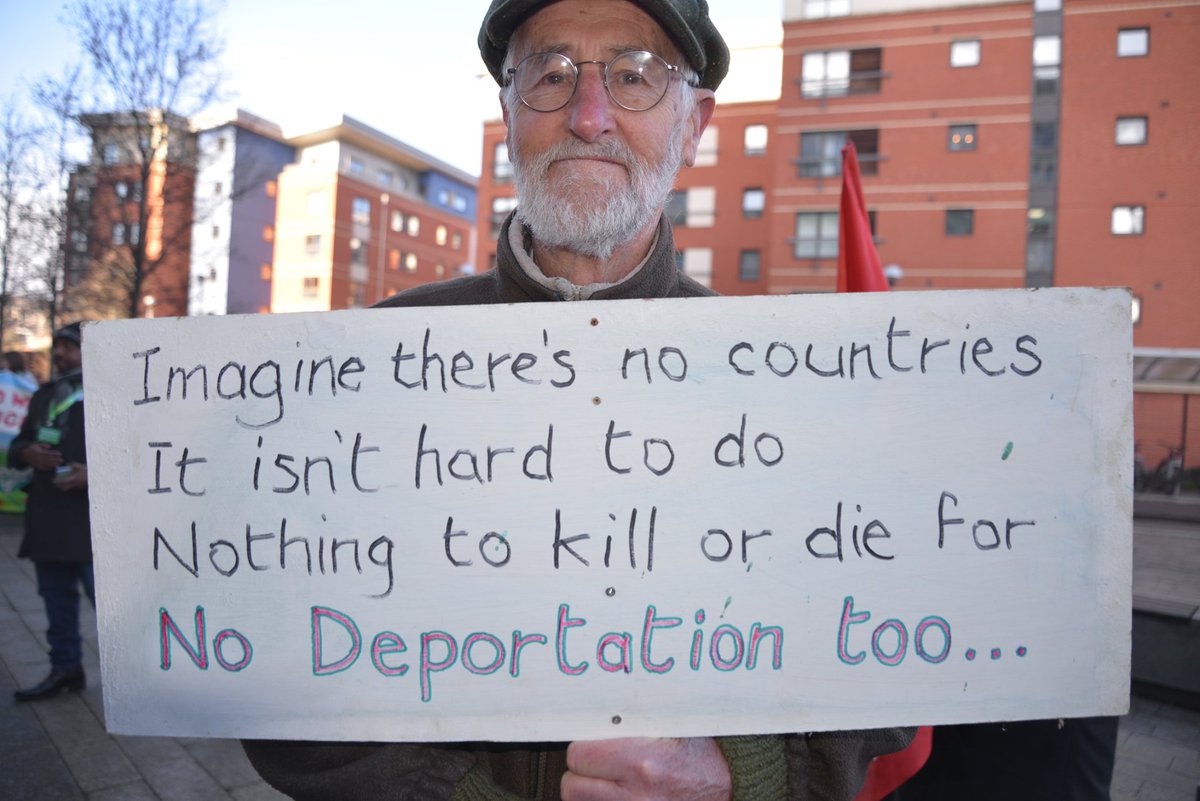 Imagine there's no countries
It isn't hard to do
Nothing to kill or die for
No Deportation too...